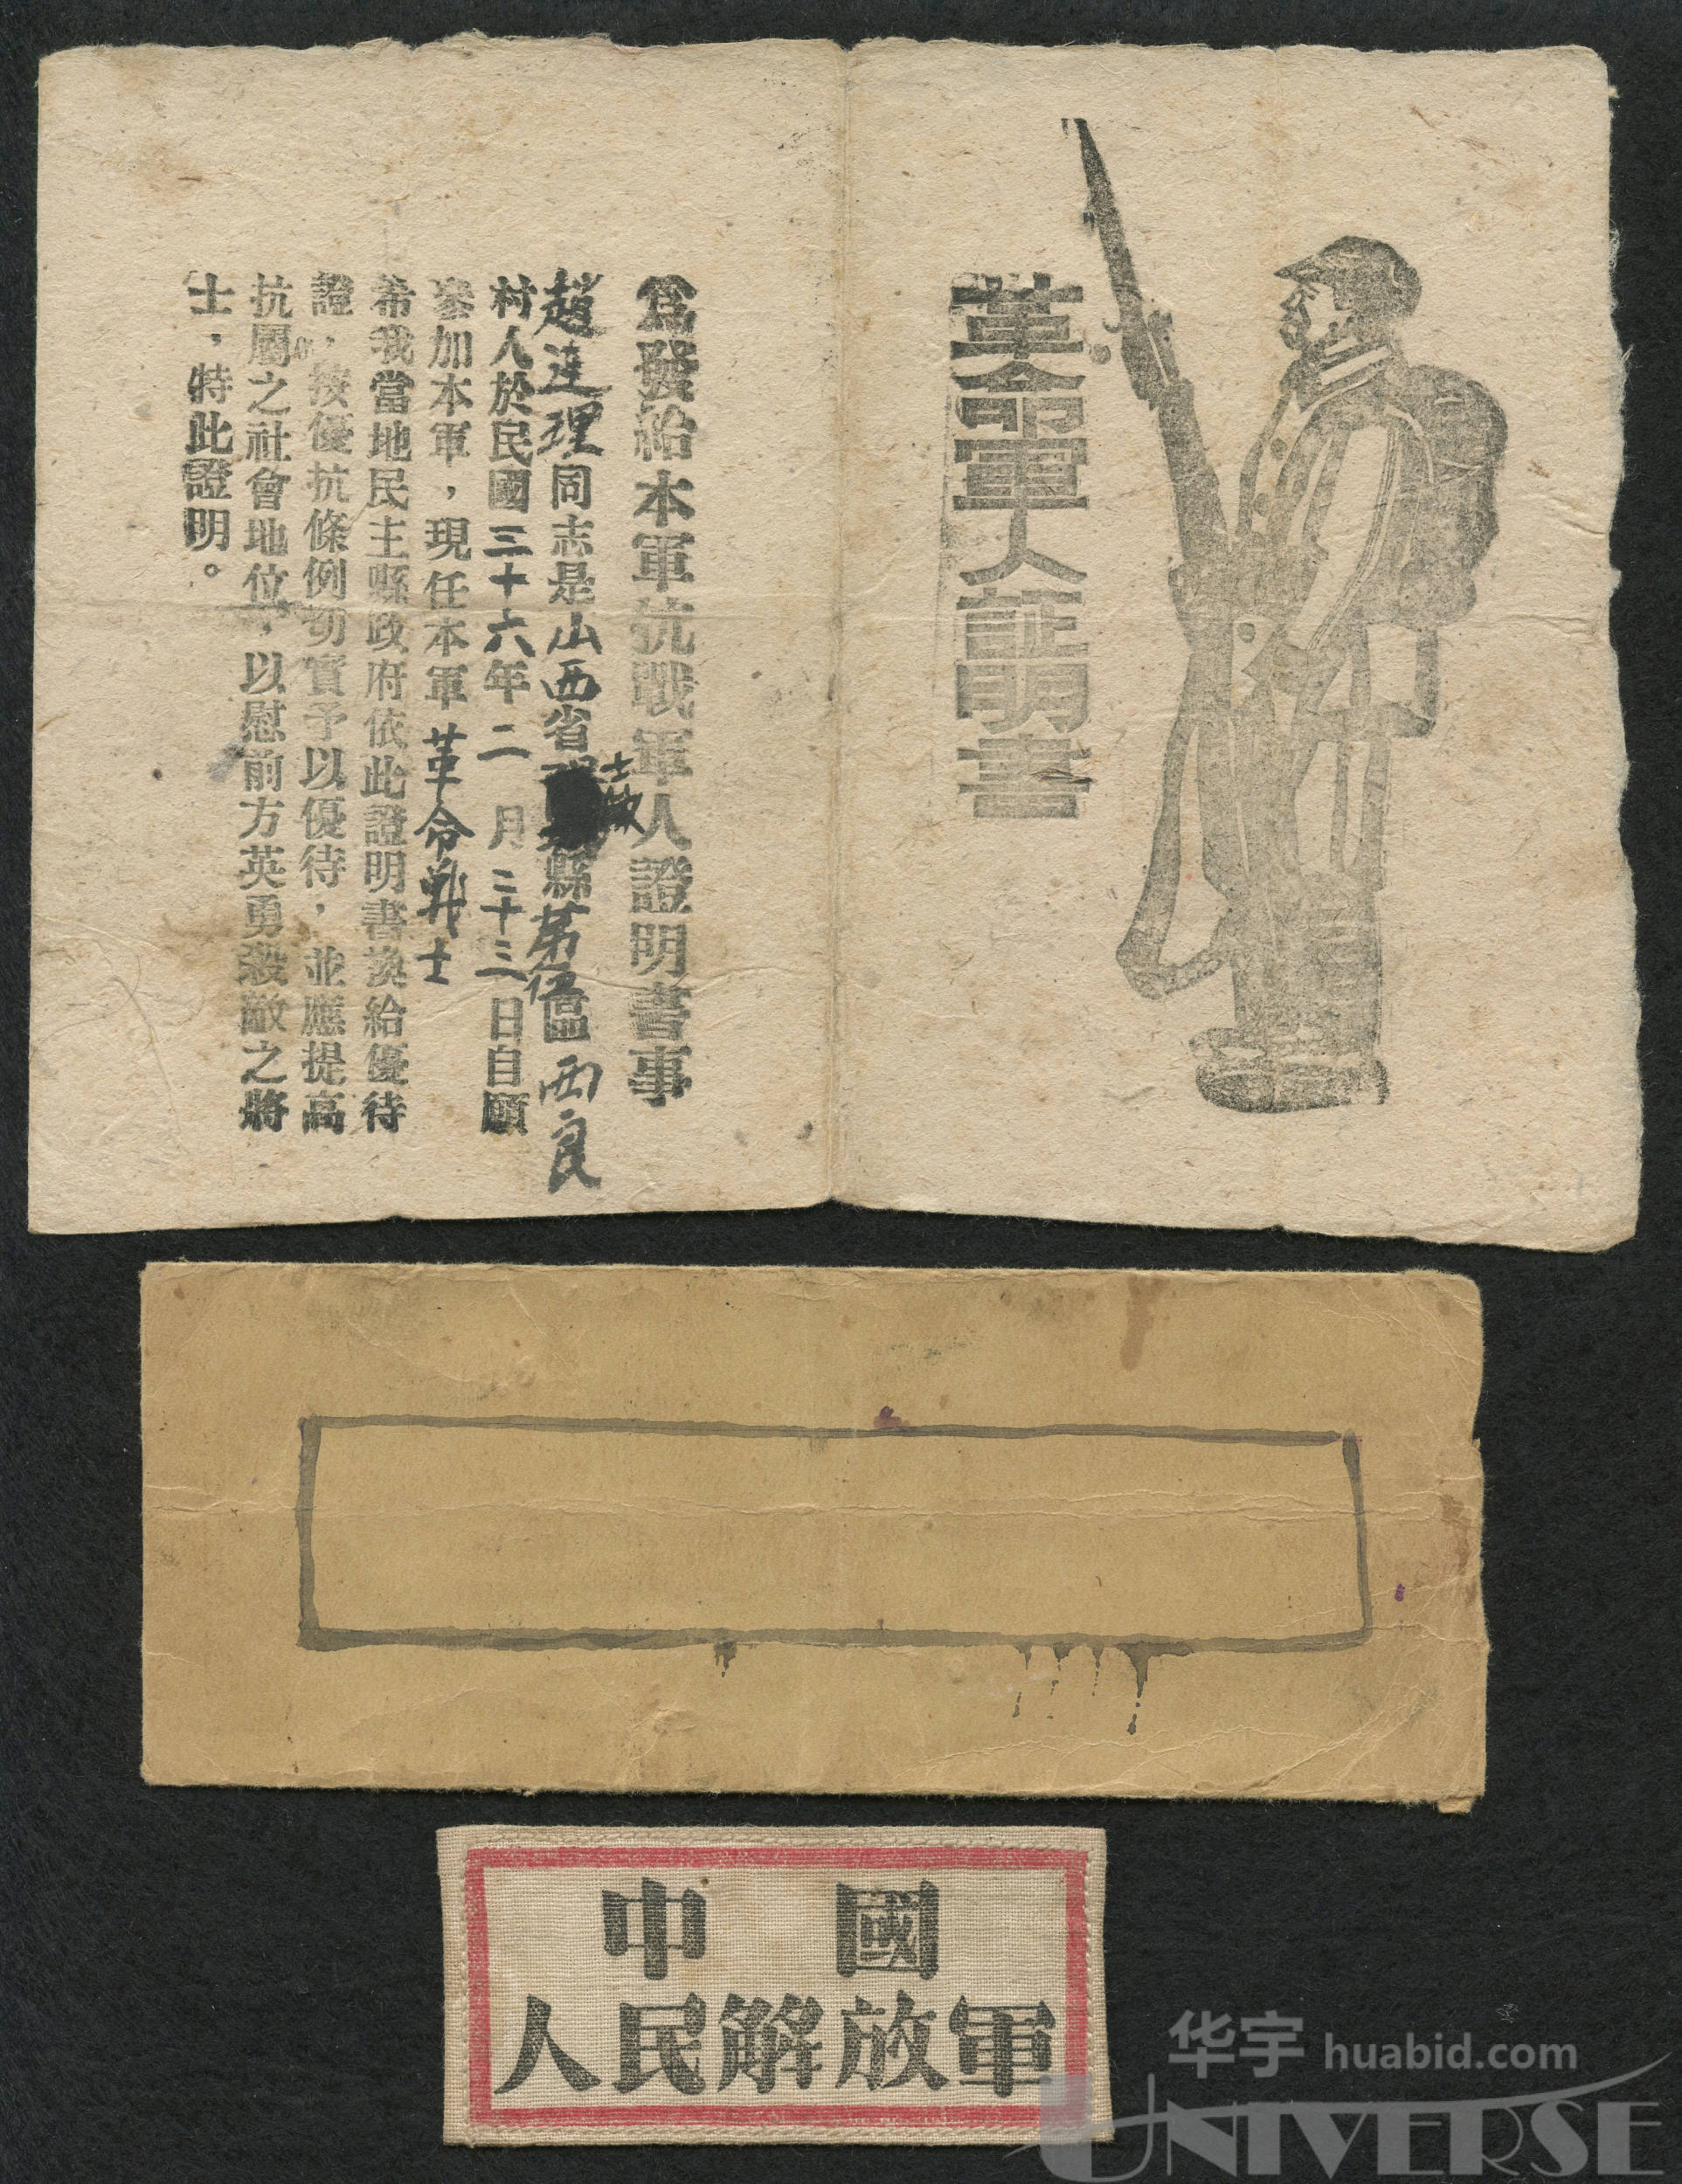 革命軍人証明書
為發給本軍抗戰軍人證明書事
趙理同志是山西省縣第伍區西良
村人於民國三十六年二月二十三日自願
參加本軍，現任本軍革命戰士
希我當地民主縣政府依此證明書換給優待
證，按優抗條例切實予以優待，並應提高
抗屬之社會地位，以慰前方英勇殺敵之將
士，特此證明。
中國
人民解放軍
华宇 huabid.com
UNIVERSE